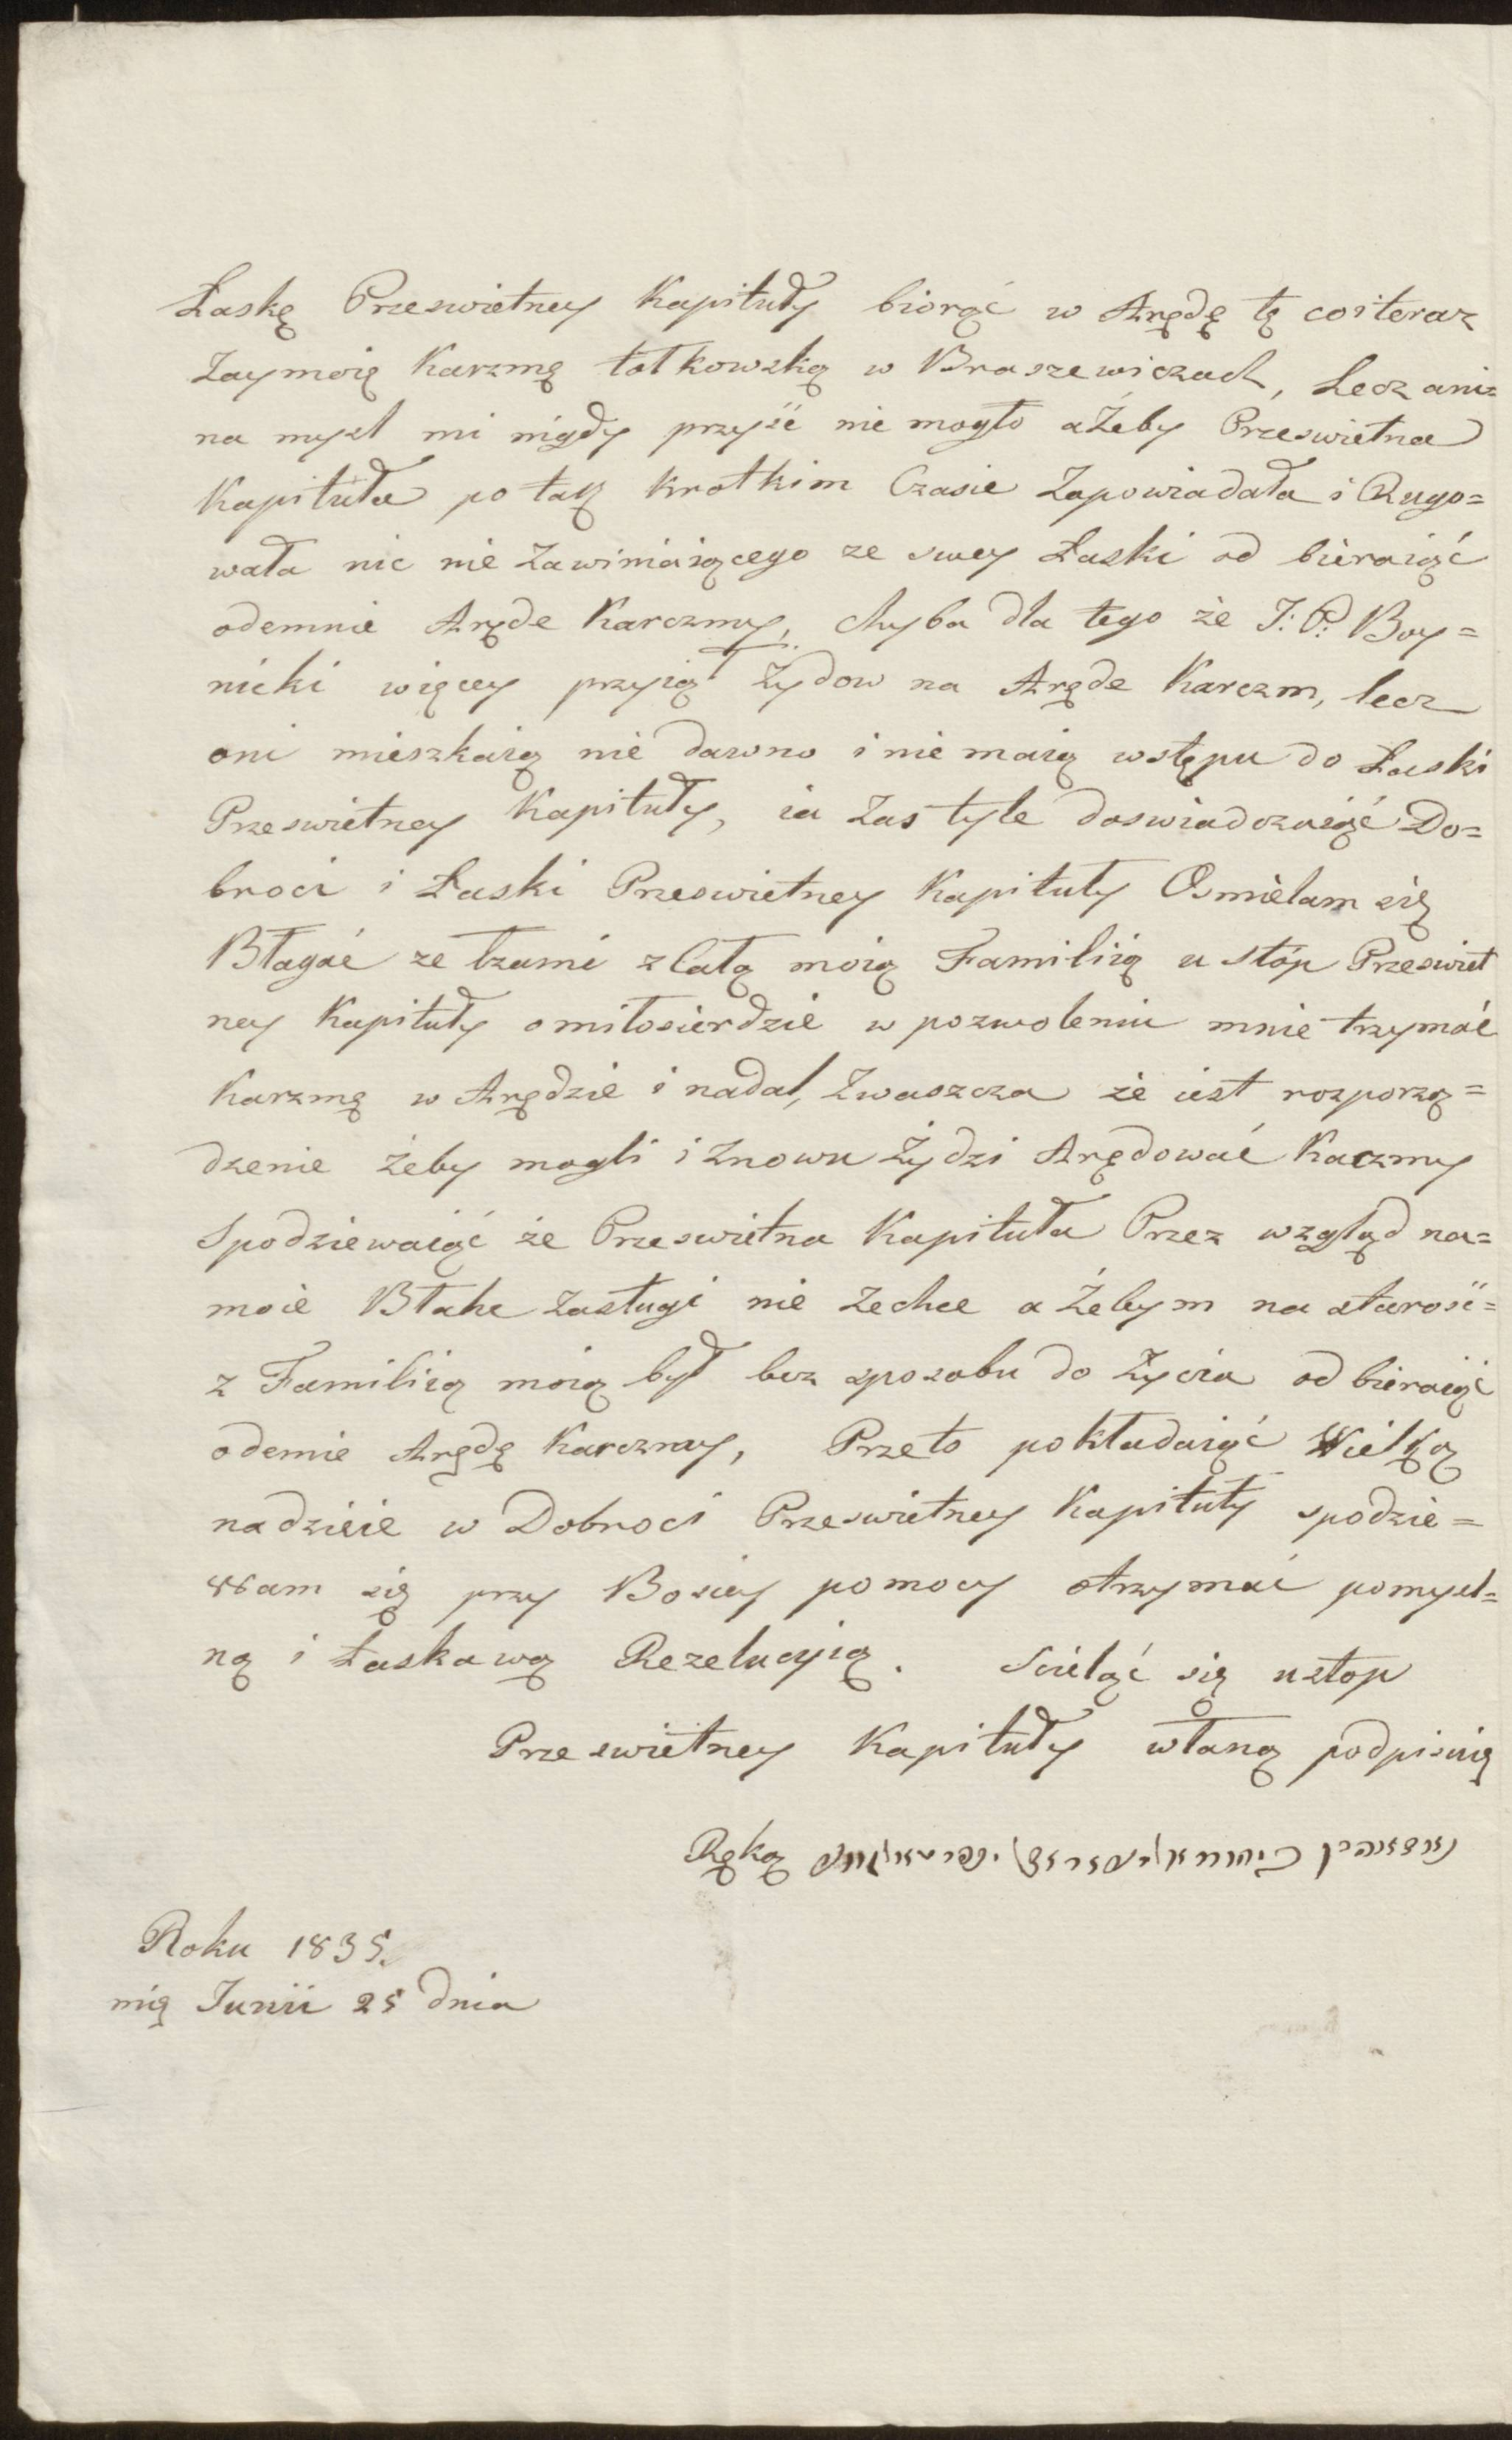 Łaskę Przeswietney Kapituły biorąć w Arędę tę co i teraz
Zaymoię Karzmę tołkowską w Braszewiczach, Lecz ani=
na mysl mi nigdy przyść nie mogło aŻeby Przeswietna
Kapituła po tak krotkim Czasie Zapowiadała i Rugo=
wała nic nie Zawiniaiącego ze swey Łaski od bieraiąć
odemnie Arędę Karczmy, chyba dla tego że J: P: Boy=
nicki więcey przyiął Żydow na Arędę Karczm, lecz
oni mieszkaią nie dawno i nie maią wstępu do Łaski
Przeswietney Kapituły, ia Zas tyle doswiadczaiąć Do=
broci i Łaski Przeswietney Kapituły Osmielam się
Błagać ze łzami z Całą moią Familiią u stóp Przeswiet
ney Kapituły o miłosierdzie w pozwoleniu mnie trzymać
Karzmę w Arędzie i nadal, Zwaszcza że iest rozporzą=
dzenie żeby mogli i Znowu Żydzi Arędować Kaczmy
Spodziewaiąć że Przeswietna Kapituła Przez wzgląd na=
moie Błahe Zasługi nie Zechce a Żebym na starość=
z Familiią moią był bez sposobu do Życia od bieraiąć
odemie Arędę Karczmy, Przeto pokładaiąć Wielką
nadzieie w Dobroci Przeswietney Kapituły spodzie=
wam się przy Bosiey pomocy otrzymać pomysl=
ną i Łaskawą Rezelucyią. Scieląć się u stop
Przeswietney Kapituły właną podpisuię
Ręką
Roku 1835.
mią Junii 25 dnia